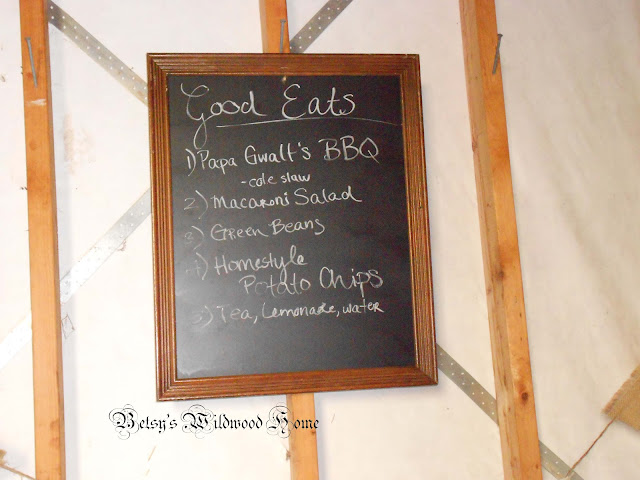 Good Eats
1) Papa Gwalt's BBQ
-cole slaw
2) Macaroni Salad
3) Green Beans
4) Homestyle
Potato Chips
5) Tea, Lemonade, water
Betsy's Wildwood Home